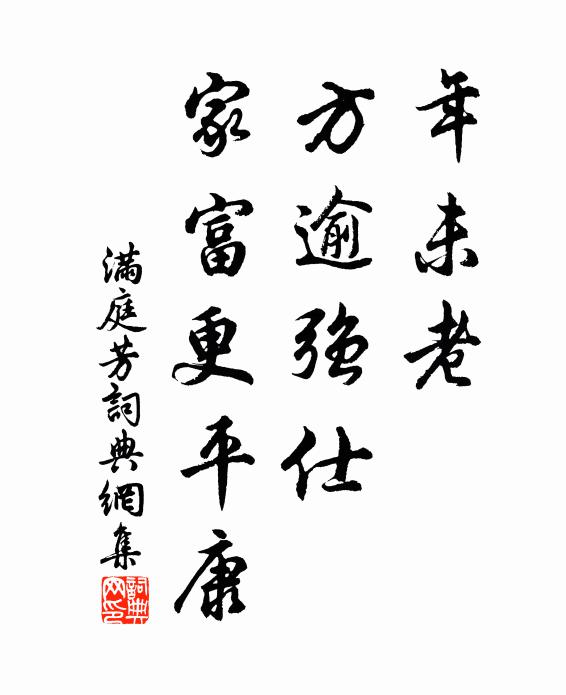 年未老
方逾强仕
家富更平康
滿庭芳詞典網集
詞典网印